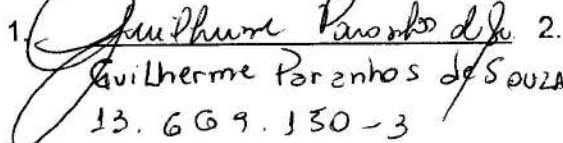 1. Guilherme Paranhos de S. 2.
Guilherme Paranhos de SOUZA
13.669.150-3